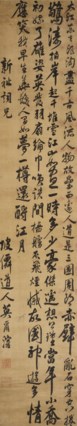 大江東去浪淘盡千古風流人物故壘西邊人道是三國周郎赤壁亂石穿空
驚濤拍岸捲起千堆雪江山如畫一時多少豪傑遙想公瑾當年小喬
初嫁了雄姿英發羽扇綸巾談笑間檣艣灰飛煙滅故國神遊多情
應笑我早生華髮人生如夢一樽還酹江月
相兄
道人吳